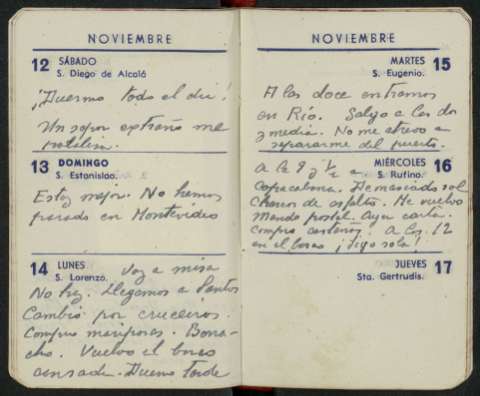 NOVIEMBRE
12 SÁBADO
S. Diego de Alcalá
¡Duermo todo el día!
Un sopor extraño me
13 DOMINGO
S. Estanislao.
Estoy mejor. No hemos
parado en Montevideo
14 LUNES
S. Lorenzo.
Voy a misa
No hay. Llegamos a Santos
Cambio por cruceiros.
Compro mariposas. Borra-
cho. Vuelvo al barco
cansada. Duermo tarde
NOVIEMBRE
MARTES 15
S. Eugenio.
A las doce entramos
en Río. Salgo a las dos
y media. No me atrevo a
separarme del puerto.
MIÉRCOLES 16
S. Rufino.
A las 9 y ½ a
Copacabana. Demasiado sol
de asfalto. Me vuelvo
Mando postal. Ayer carta.
Compro A las 12
en el barco ¡Sigo sola!
JUEVES 17
Sta. Gertrudis.